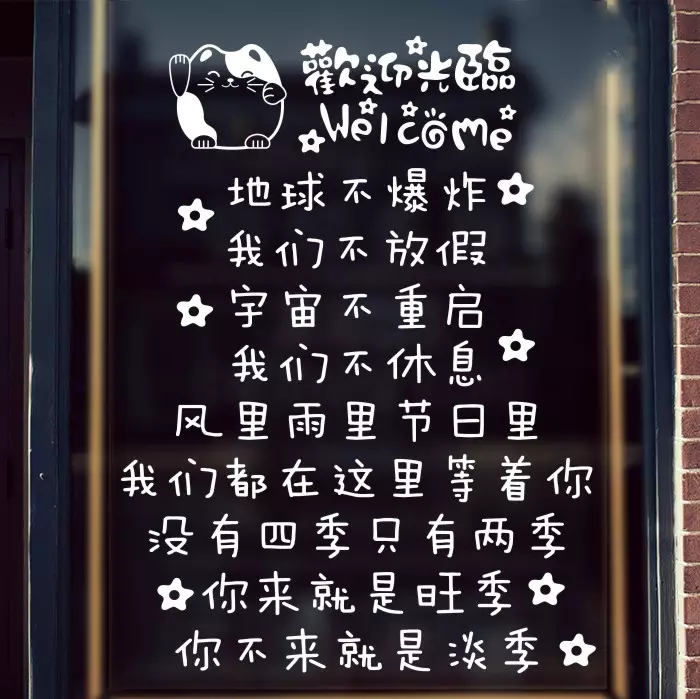 歡迎光臨
Welcome
地球不爆炸
我们不放假
宇宙不重启
我们不休息
风里雨里节日里
我们都在这里等着你
没有四季只有两季
你来就是旺季
你不来就是淡季